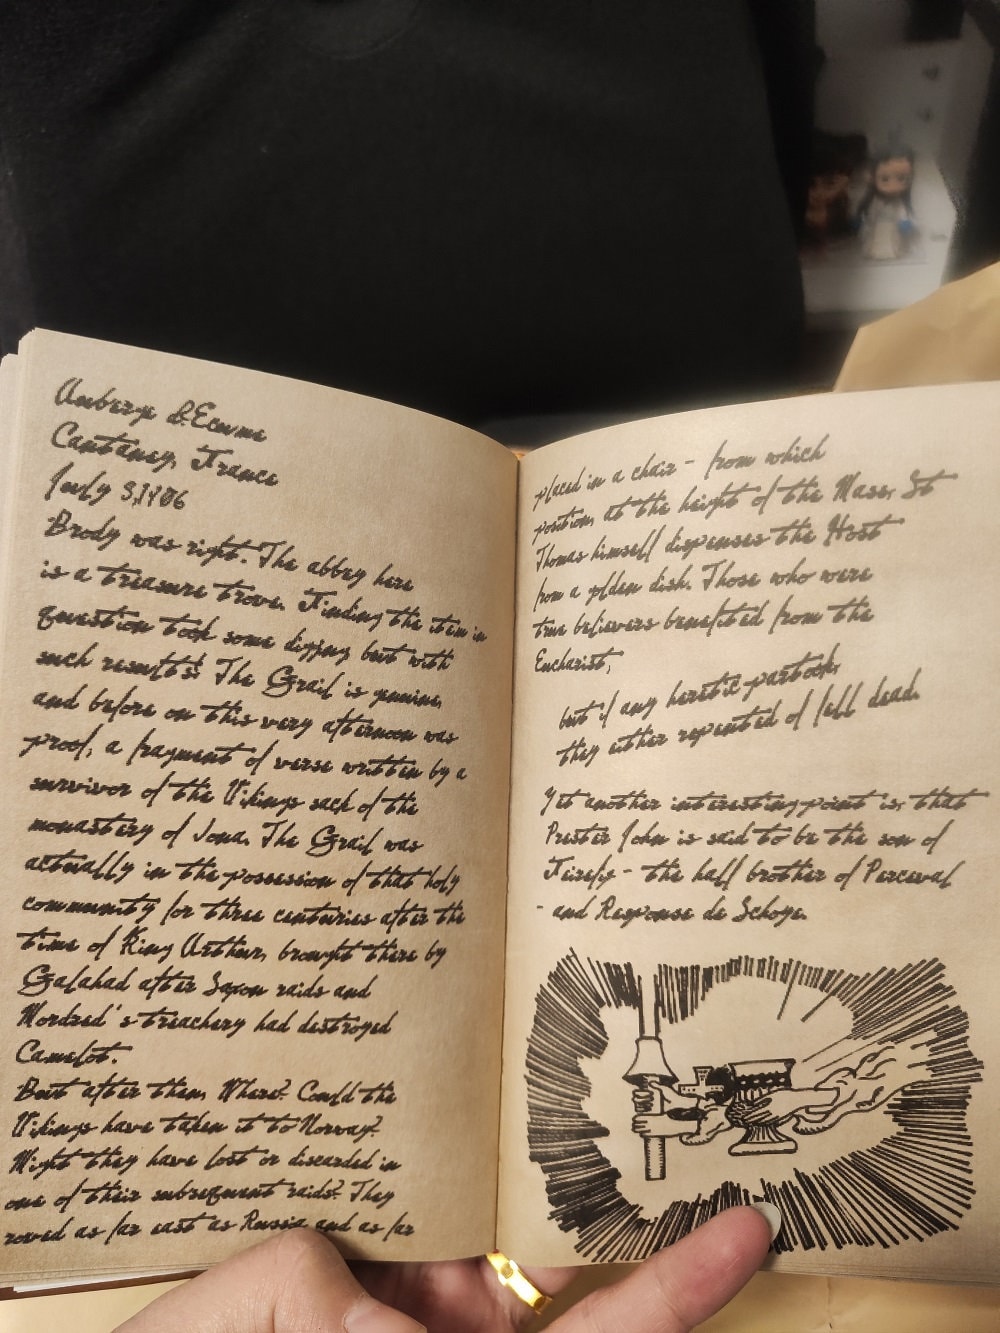 Auberge
Cantaney, France
July 3,1906
Brody was right. The abbey here
is a treasure trove. Finding the item in
question took some digging but with
such results! The Grail is genuine,
and before on this very afternoon was
proof, a fragment of verse written by a
survivor of the Vikings sack of the
monastery of Iona. The Grail was
actually in the possession of that holy
community for three centuries after the
time of King Arthur, brought there by
Galahad after Saxon raids and
Mordred's treachery had destroyed
Camelot.
But after then, Where? Could the
Vikings have taken it to Norway?
Might they have lost or discarded in
one of their subsequent raids? They
roved as far east as Russia and as far
placed in a chair - from which
position, at the height of the Mass, St
Thomas himself dispenses the Host
from a golden dish. Those who were
true believers benefited from the
Eucharist,
but if any heretic partook,
they either repented of fell dead.
Yet another interesting point is, that
Prester John is said to be the son of
Feirefiz - the half brother of Perceval
- and Response de Schoye.